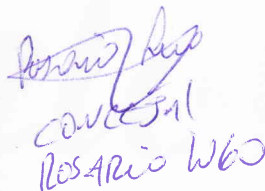 Rosario Lugo
CONCEJAL
ROSARIO LUGO